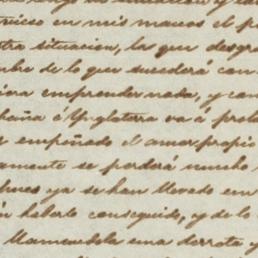 en mis manos el p
tra situacion, las que desgra
bre de lo que sucederá con
emprender nada, y con
paña é Ynglaterra va á prol
empeñado el amor propio
amente se perderá mucho
pues ya se han llevado em
haberlo conseguido, y de lo
una derrota y